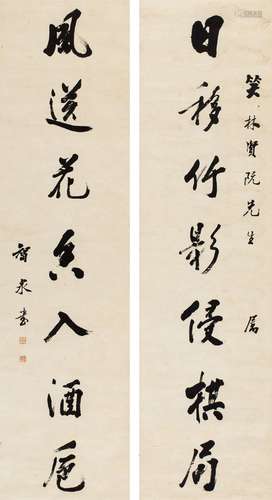 笑林贤阮先生属
日移竹影侵棋局
风送花香入酒卮
智泉书